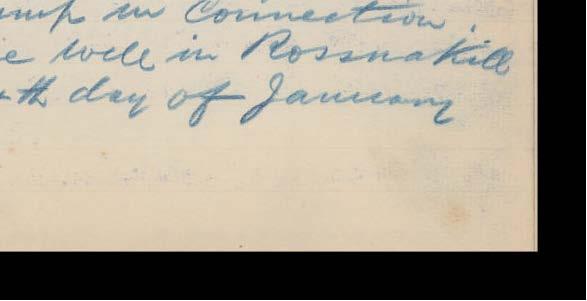 in Connection
well in Rossnakill
th day of January